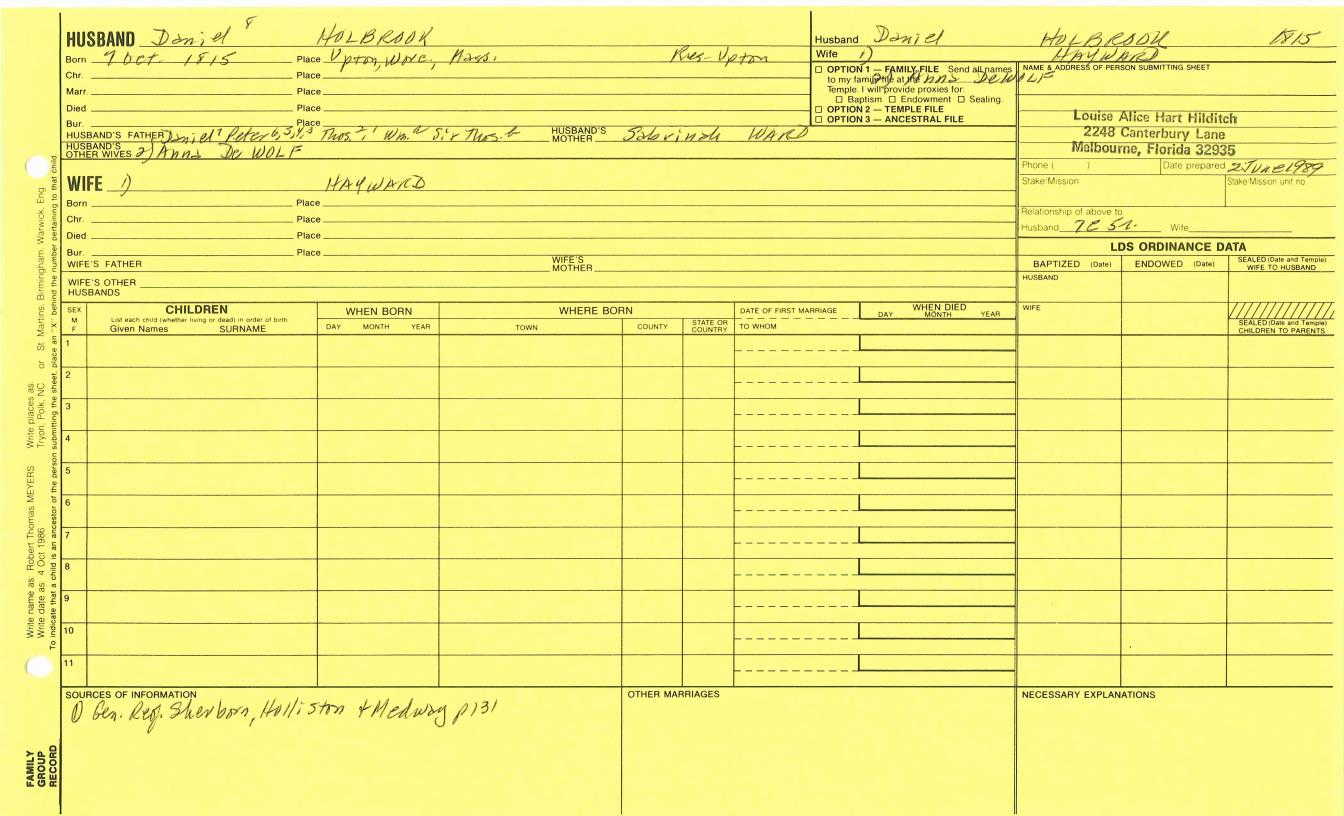 HUSBAND Daniel 8 HOLBROOK
Born 7 Oct. 1815 Place Upton, Worc, Mass. Res-Upton
Chr. Place
Marr. Place
Died Place
Bur. Place
HUSBAND'S FATHER Daniel 7 Peter 6, 5, 4, 3 Thos. 2, 1 Wm. a Sir Thos. b HUSBAND'S MOTHER Sabrinah WARD
HUSBAND'S OTHER WIVES 2) Anna De WOLF
WIFE 1) HAYWARD
Born Place
Chr. Place
Died Place
Bur. Place
WIFE'S FATHER WIFE'S MOTHER
WIFE'S OTHER HUSBANDS
Husband Daniel HOLBROOK 1815
Wife 1) HAYWARD
2) Anna DeWOLF
OPTION 1 — FAMILY FILE Send all names
to my family file at the
Temple. I will provide proxies for:
Baptism Endowment Sealing.
OPTION 2 — TEMPLE FILE
OPTION 3 — ANCESTRAL FILE
NAME & ADDRESS OF PERSON SUBMITTING SHEET
Louise Alice Hart Hilditch
2248 Canterbury Lane
Melbourne, Florida 32935
Phone ( ) Date prepared 2 June 1989
Stake/Mission Stake/Mission unit no.
Relationship of above to
Husband 7C 5r. Wife
LDS ORDINANCE DATA
BAPTIZED (Date) ENDOWED (Date) SEALED (Date and Temple) WIFE TO HUSBAND
HUSBAND
WIFE
SEALED (Date and Temple) CHILDREN TO PARENTS
SEX M F
CHILDREN
List each child (whether living or dead) in order of birth
Given Names SURNAME
WHEN BORN
DAY MONTH YEAR
WHERE BORN
TOWN COUNTY STATE OR COUNTRY
DATE OF FIRST MARRIAGE
TO WHOM
WHEN DIED
DAY MONTH YEAR
1
2
3
4
5
6
7
8
9
10
11
SOURCES OF INFORMATION
1) Gen. Reg. Sherborn, Holliston + Medway p131
OTHER MARRIAGES
NECESSARY EXPLANATIONS
Write name as Robert Thomas MEYERS Write places as Tryon, Polk, NC or St. Martins, Birmingham, Warwick, Eng.
Write date as 4 Oct 1986
To indicate that a child is an ancestor of the person submitting the sheet, place an "X" behind the number pertaining to that child.
FAMILY GROUP RECORD